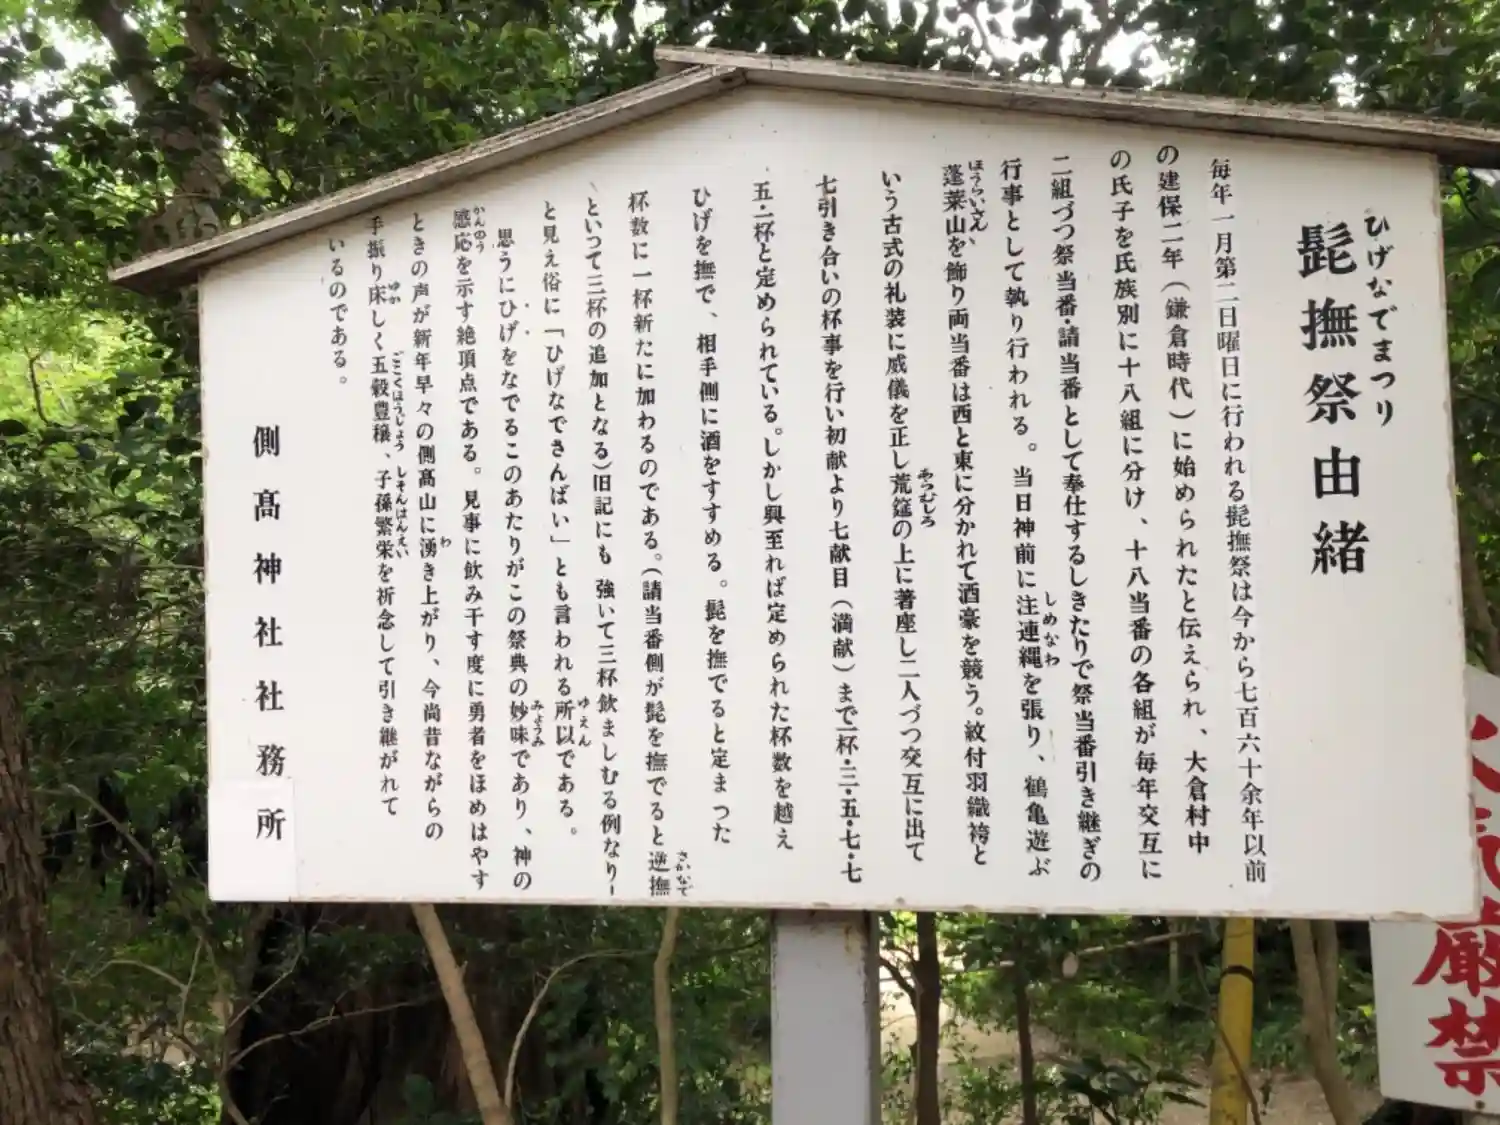 ひげなでまつり
髭撫祭由緒
毎年一月第二日曜日に行われる髭撫祭は今から七百六十余年以前
の建保二年(鎌倉時代)に始められたと伝えられ、大倉村中
の氏子を氏族別に十八組に分け、十八当番の各組が毎年交互に
二組づつ祭当番・請当番として奉仕するしきたりで祭当番引き継ぎの
行事として執り行われる。当日神前に注連縄を張り、鶴亀遊ぶ
しめなわ
蓬莱山を飾り両当番は西と東に分かれて酒豪を競う。紋付羽織袴と
ほうらいさん
いう古式の礼装に威儀を正し荒筵の上に著座し二人づつ交互に出て
あらむしろ
七引き合いの杯事を行い初献より七献目(満献)まで一杯・三・五・七・七
五・二杯と定められている。しかし興至れば定められた杯数を越え
ひげを撫で、相手側に酒をすすめる。髭を撫でると定まった
杯数に一杯新たに加わるのである。(請当番側が髭を撫でると逆撫
さかなで
といつて三杯の追加となる)旧記にも 強いて三杯飲ましむる例なり―
と見え俗に「ひげなでさんばい」とも言われる所以である。
ゆえん
思うにひげをなでるこのあたりがこの祭典の妙味であり、神の
みょうみ
感応を示す絶頂点である。見事に飲み干す度に勇者をほめはやす
かんのう
ときの声が新年早々の側髙山に湧き上がり、今尚昔ながらの
わ
手振り床しく五穀豊穣、子孫繁栄を祈念して引き継がれて
ゆか ごこくほうじょう しそんはんえい
いるのである。
側髙神社社務所
厳禁